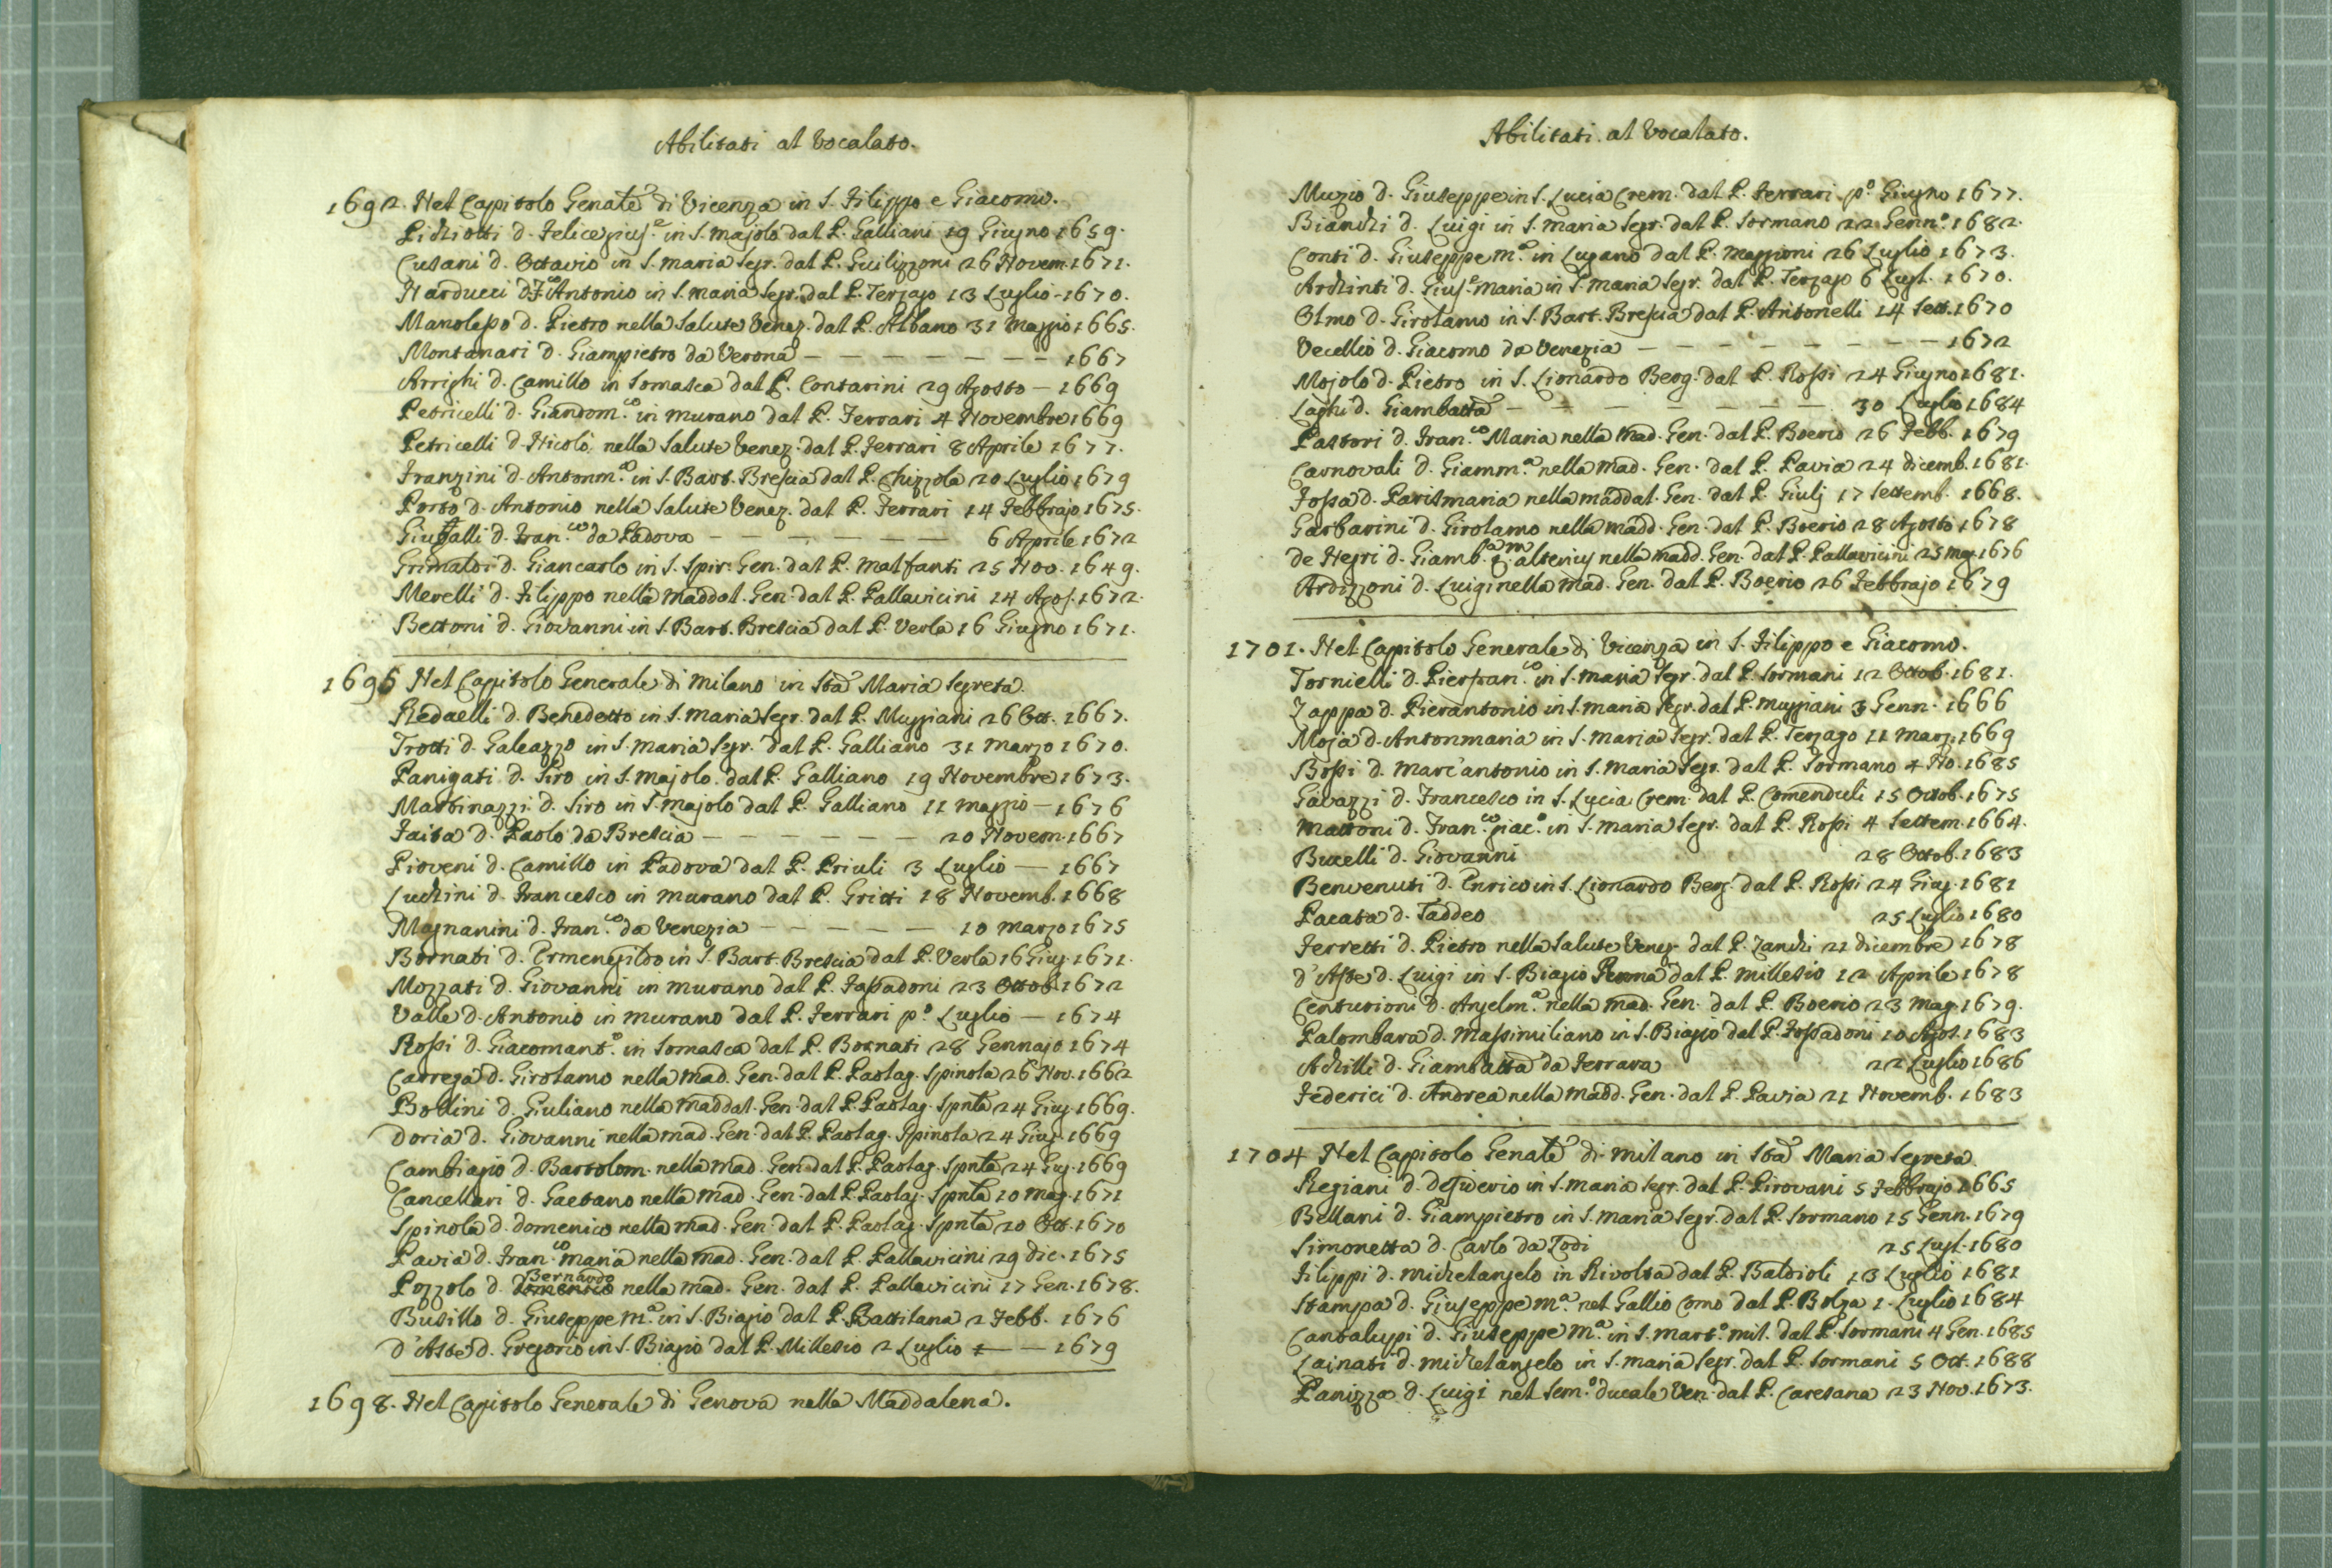 Abilitati al Vocalato.
1692. Nel Capitolo Genale di Vicenza in S. Filippo e Giacomo.
Pichiotti d. Felice in S. Majolo dal P. Galliani 19 Giugno 1659.
Cusani d. Ottavio in S. Maria Segr. dal P. Guilizzoni 26 Novem. 1671.
Narducci d. F.co Antonio in S. Maria Segr. dal P. Terzago 13 Luglio - 1670.
Manolesso d. Pietro nella Salute Venez. dal P. Albano 31 Maggio 1665.
Montanari d. Giampietro da Verona — — — — — — — 1667
Arrighi d. Camillo in Somasca dal P. Contarini 29 Agosto — 1669
Petricelli d. Giandom.co in Murano dal P. Ferrari 4 Novembre 1669
Petricelli d. Nicolò nella Salute Venez. dal P. Ferrari 8 Aprile 1677.
Franzini d. Antonm.a in S. Bart. Brescia dal P. Chizzola 20 Luglio 1679
Porto d. Antonio nella Salute Venez. dal P. Ferrari 14 Febbrajo 1675.
d. Fran.co da Padova — — — — — — — 6 Aprile 1672
Grimaldi d. Giancarlo in S. Spir. Gen. dal P. Malfanti 25 Nov. 1649.
Merelli d. Filippo nella Maddal. Gen. dal P. Pallavicini 14 Agos. 1672.
Bettoni d. Giovanni in S. Bart. Brescia dal P. Verla 16 Giugno 1671.
1695 Nel Capitolo Generale di Milano in Sta Maria Segreta.
Redaelli d. Benedetto in S. Maria Segr. dal P. Muggiani 26 Ott. 1667.
Trotti d. Galeazzo in S. Maria Segr. dal P. Galliano 31 Marzo 1670.
Panigati d. Siro in S. Majolo dal P. Galliano 19 Novembre 1673.
Martinazzi d. Siro in S. Majolo dal P. Galliano 11 Maggio — 1676
Faita d. Paolo da Brescia — — — — — — 20 Novem. 1667
Pioveni d. Camillo in Padova dal P. Priuli 3 Luglio — 1667
Luchini d. Francesco in Murano dal P. Gritti 18 Novemb. 1668
Magnanini d. Fran.co da Venezia — — — — — 10 Marzo 1675
Bornati d. Ermenegildo in S. Bart. Brescia dal P. Verla 16 Giug. 1671.
Mozzati d. Giovanni in Murano dal P. Fassadoni 23 Ottob. 1672
Valle d. Antonio in Murano dal P. Ferrari p.o Luglio — 1674
Rossi d. Giacomant.o in Somasca dal P. Bornati 28 Gennajo 1674
Carrega d. Girolamo nella Mad. Gen. dal P. Paolag. Spinola 26 Nov. 1662
Bollini d. Giuliano nella Maddal. Gen. dal P. Paolag. Spnla 24 Giug. 1669.
Doria d. Giovanni nella Mad. Gen. dal P. Paolag. Spinola 24 Giug. 1669
Cambiagio d. Bartolom. nella Mad. Gen. dal P. Paolag. Spnla 24 Giug. 1669
Cancellari d. Gaetano nella Mad. Gen. dal P. Paolag. Spnla 10 Mag. 1671
Spinola d. Domenico nella Mad. Gen. dal P. Paolag. Spnla 20 Ott. 1670
Pavia d. Fran.co Maria nella Mad. Gen. dal P. Pallavicini 29 Dic. 1675
Pozzolo d. Domenico Bernardo nella Mad. Gen. dal P. Pallavicini 17 Gen. 1678.
Busillo d. Giuseppe M.a in S. Biagio dal P. Battilana 2 Febb. 1676
d'Aste d. Gregorio in S. Biagio dal P. Millesio 2 Luglio — — 1679
1698. Nel Capitolo Generale di Genova nella Maddalena.
Abilitati al Vocalato.
Muzio d. Giuseppe in S. Lucia Crem. dal P. Ferrari p.o Giugno 1677.
Bianchi d. Luigi in S. Maria Segr. dal P. Sormano 22 Genn.o 1682.
Conti d. Giuseppe M.a in Lugano dal P. Maggioni 26 Luglio 1673.
Archinti d. Gius.e Maria in S. Maria Segr. dal P. Terzago 6 Lugl. 1670.
Olmo d. Girolamo in S. Bart. Brescia dal P. Antonelli 14 Sett. 1670
Vecellio d. Giacomo da Venezia — — — — — — — — 1672
Mojolo d. Pietro in S. Lionardo Berg. dal P. Rossi 24 Giugno 1681.
Laghi d. Giambatta — — — — — — — 30 Luglio 1684
Pastori d. Fran.co Maria nella Mad. Gen. dal P. Boerio 26 Febb. 1679
Carnovali d. Giamm.a nella Mad. Gen. dal P. Pavia 24 Dicemb. 1681.
Fossa d. Parismaria nella Maddal. Gen. dal P. Giulj 17 Settemb. 1668.
Garbarini d. Girolamo nella Madd. Gen. dal P. Boerio 28 Agosto 1678
de Negri d. Giamb. alterius nella Madd. Gen. dal P. Pallavicini 25 Mag. 1676
Ardizzoni d. Luigi nella Mad. Gen. dal P. Boerio 26 Febbrajo 1679
1701. Nel Capitolo Generale di Vicenza in S. Filippo e Giacomo.
Tornielli d. Pierfran.co in S. Maria Segr. dal P. Sormani 12 Ottob. 1681.
Zappa d. Pierantonio in S. Maria Segr. dal P. Muggiani 3 Genn. 1666
Moja d. Antonmaria in S. Maria Segr. dal P. Terzago 11 Marz. 1669
Bossi d. Marc'antonio in S. Maria Segr. dal P. Sormano 4 No. 1685
Gavazzi d. Francesco in S. Lucia Crem. dal P. Comenduli 15 Ottob. 1675
Mattoni d. Fran.co Giac.o in S. Maria Segr. dal P. Rossi 4 Settem. 1664.
Bucelli d. Giovanni 28 Ottob. 1683
Benvenuti d. Enrico in S. Lionardo Berg. dal P. Rossi 24 Giug. 1681
Pacata d. Taddeo 25 Luglio 1680
Ferretti d. Pietro nella Salute Venez. dal P. Zanchi 21 Dicembre 1678
d'Aste d. Luigi in S. Biagio Roma dal P. Millesio 12 Aprile 1678
Centurioni d. Anselm.a nella Mad. Gen. dal P. Boerio 23 Mag. 1679.
Palombara d. Massimiliano in S. Biagio dal P. Fossadoni 10 Agos. 1683
Achilli d. Giambatta da Ferrara 22 Luglio 1686
Federici d. Andrea nella Madd. Gen. dal P. Pavia 21 Novemb. 1683
1704 Nel Capitolo Genale di Milano in Sta Maria Segreta.
Regiani d. Desiderio in S. Maria Segr. dal P. Pirovani 5 Febbrajo 1665
Bellani d. Giampietro in S. Maria Segr. dal P. Sormano 15 Genn. 1679
Simonetta d. Carlo da Lodi 25 Lugl. 1680
Filippi d. Michelangelo in Rivolta dal P. Baldioli 13 Luglio 1681
Stampa d. Giuseppe M.a nel Gallio Como dal P. Bolza 1. Luglio 1684
Cantalupi d. Giuseppe M.a in S. Mart.o Mil. dal P. Sormani 4 Gen. 1685
Lainati d. Michelangelo in S. Maria Segr. dal P. Sormani 5 Ott. 1688
Panizza d. Luigi nel Sem.o Ducale Ven. dal P. Caresana 23 Nov. 1673.